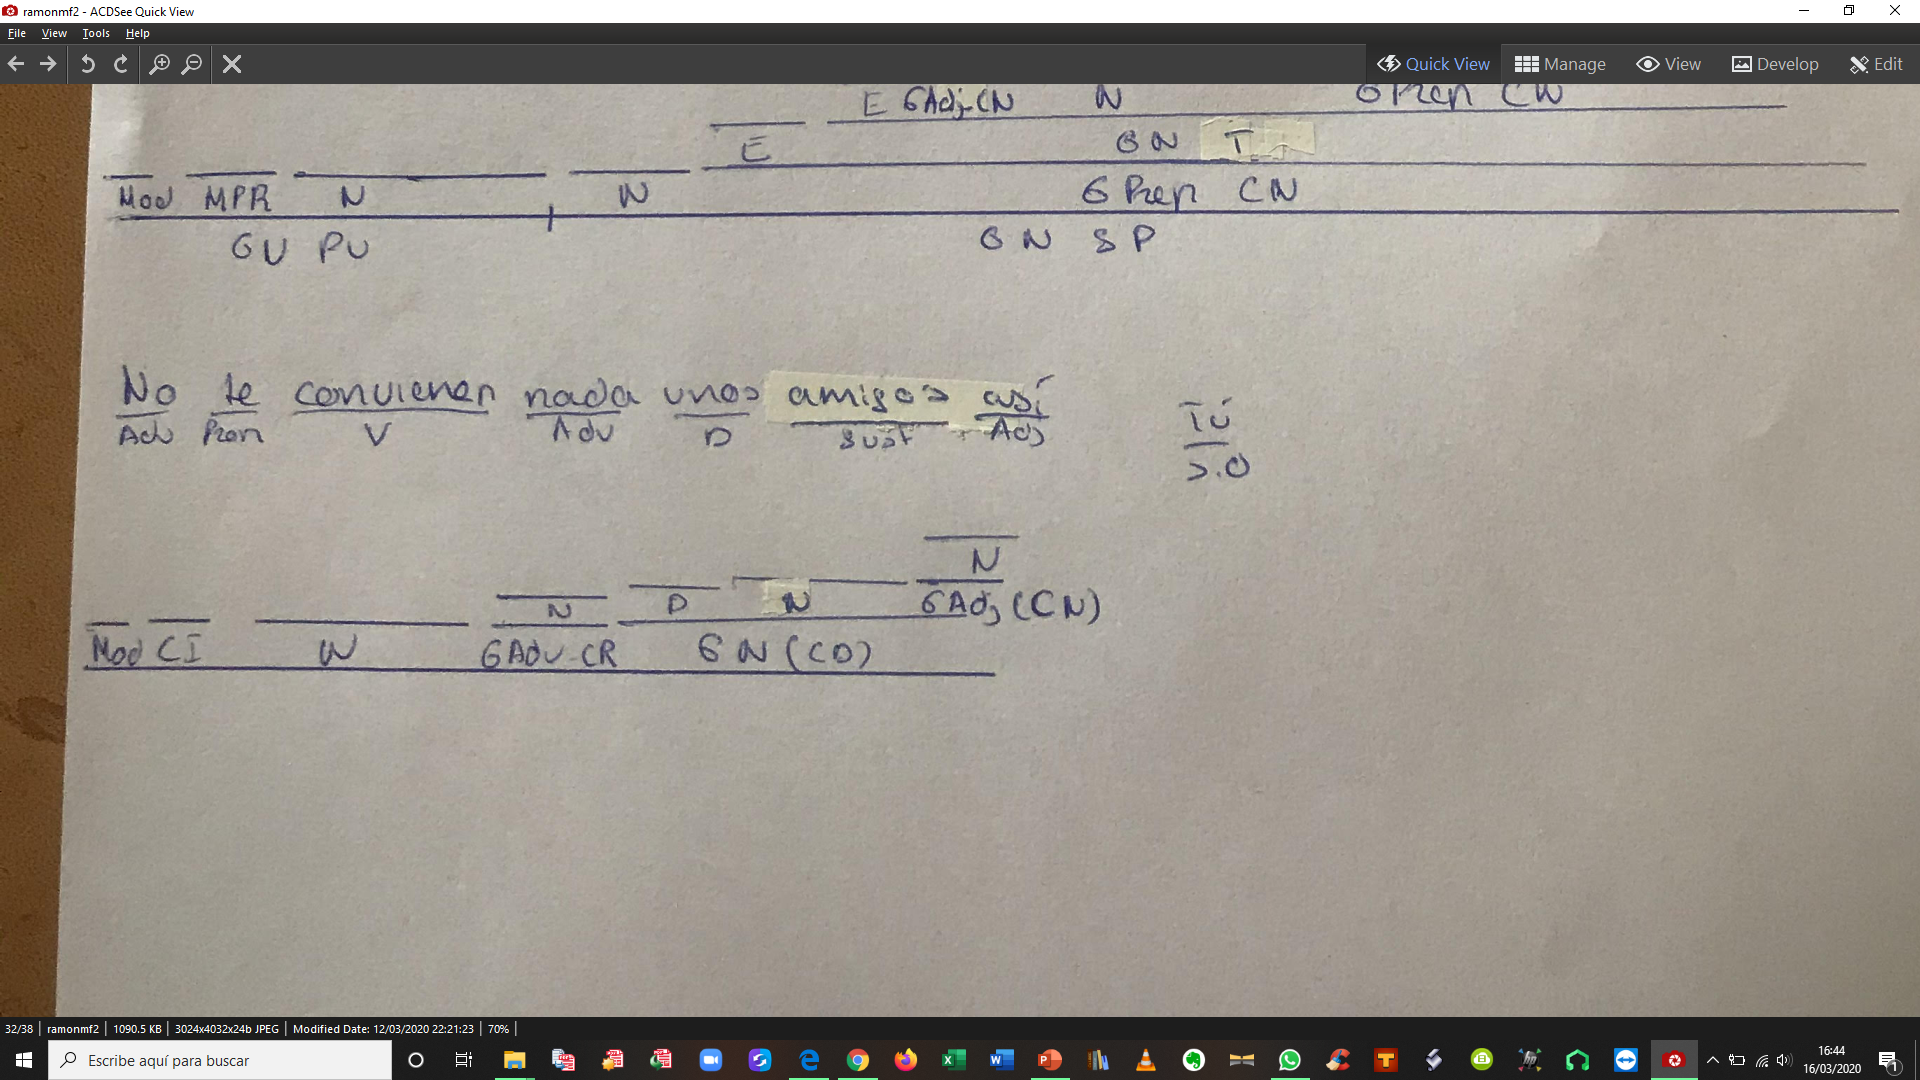 ramonmf2 - ACDSee Quick View
File View Tools Help
Quick View Manage View Develop Edit
E GAdj-CN N G Prep CN
E GN T
Mod MPR N N G Prep CN
GV PV GN SP
No te convienen nada unos amigos así Tú
Adv Pron V Adv D Sust Adj S.O
N
N D N GAdj (CN)
Mod CI N GAdv-CR GN (CD)
32/38 ramonmf2 1090.5 KB 3024x4032x24b JPEG Modified Date: 12/03/2020 22:21:23 70%
Escribe aquí para buscar
16:44
16/03/2020